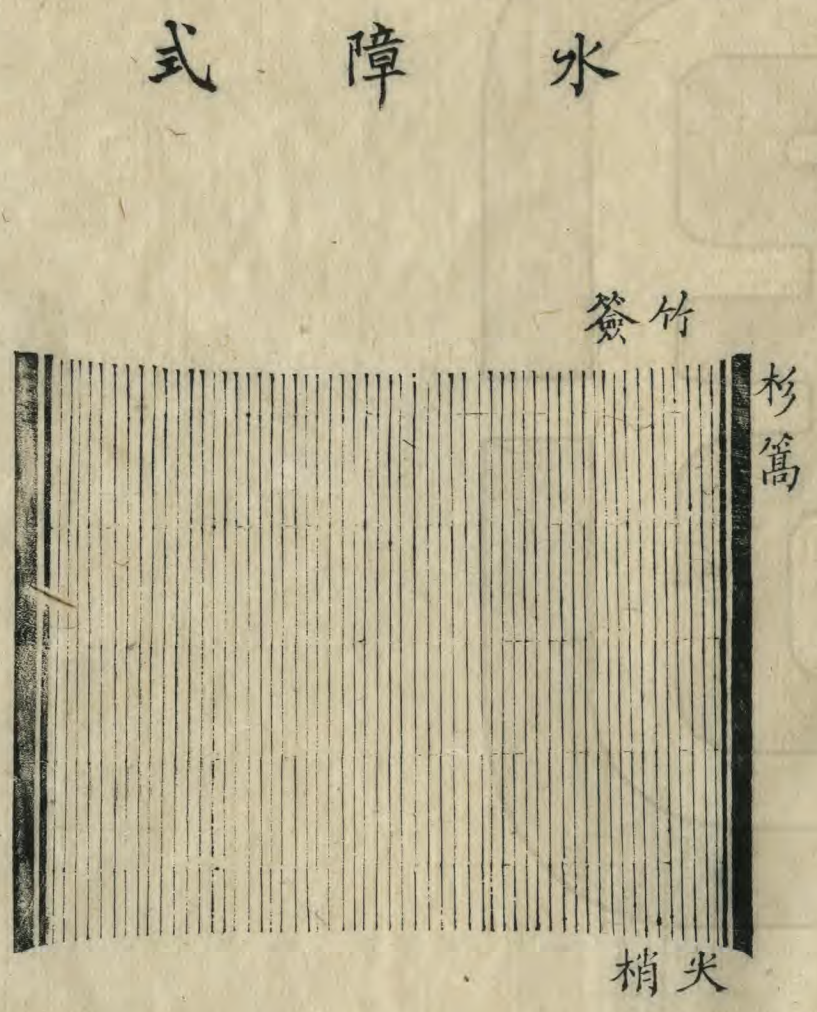 水障式
竹簽
杉篙
尖梢